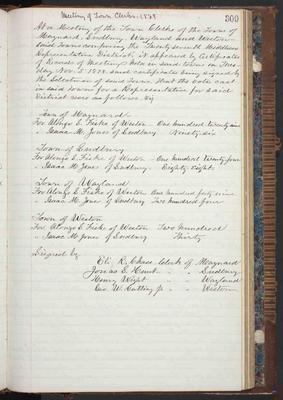 Meeting of Town Clerks, 1878
309
At a Meeting of the Town Clerks of the Towns of
Maynard, Sudbury, Wayland and Weston
said Towns comprising the Twenty seventh Middlesex
Representative District it appeared by Certificates
of Record of Meetings held in said towns on Tues
day Nov. 5 1878. said certificates being signed by
the Selectmen of said Towns that the vote cast
in said towns for a Representative for said
District were as follows viz
Town of Maynard
For Alonzo S. Fiske of Weston One hundred twenty six
" Isaac M. Jones of Sudbury Ninety six
Town of Sudbury
For Alonzo S. Fiske of Weston One hundred Twenty four
" Isaac M. Jones of Sudbury Eighty Eight
Town of Wayland
For Alonzo S. Fiske of Weston One hundred forty nine
" Isaac M. Jones of Sudbury Two hundred four
Town of Weston
For Alonzo S. Fiske of Weston Two hundred
" Isaac M Jones of Sudbury Thirty
Signed by
Eli R. Chase Clerk of Maynard
Jonas S. Hunt " " Sudbury
Henry Wight " " Wayland
Geo. W. Cutting Jr " " Weston